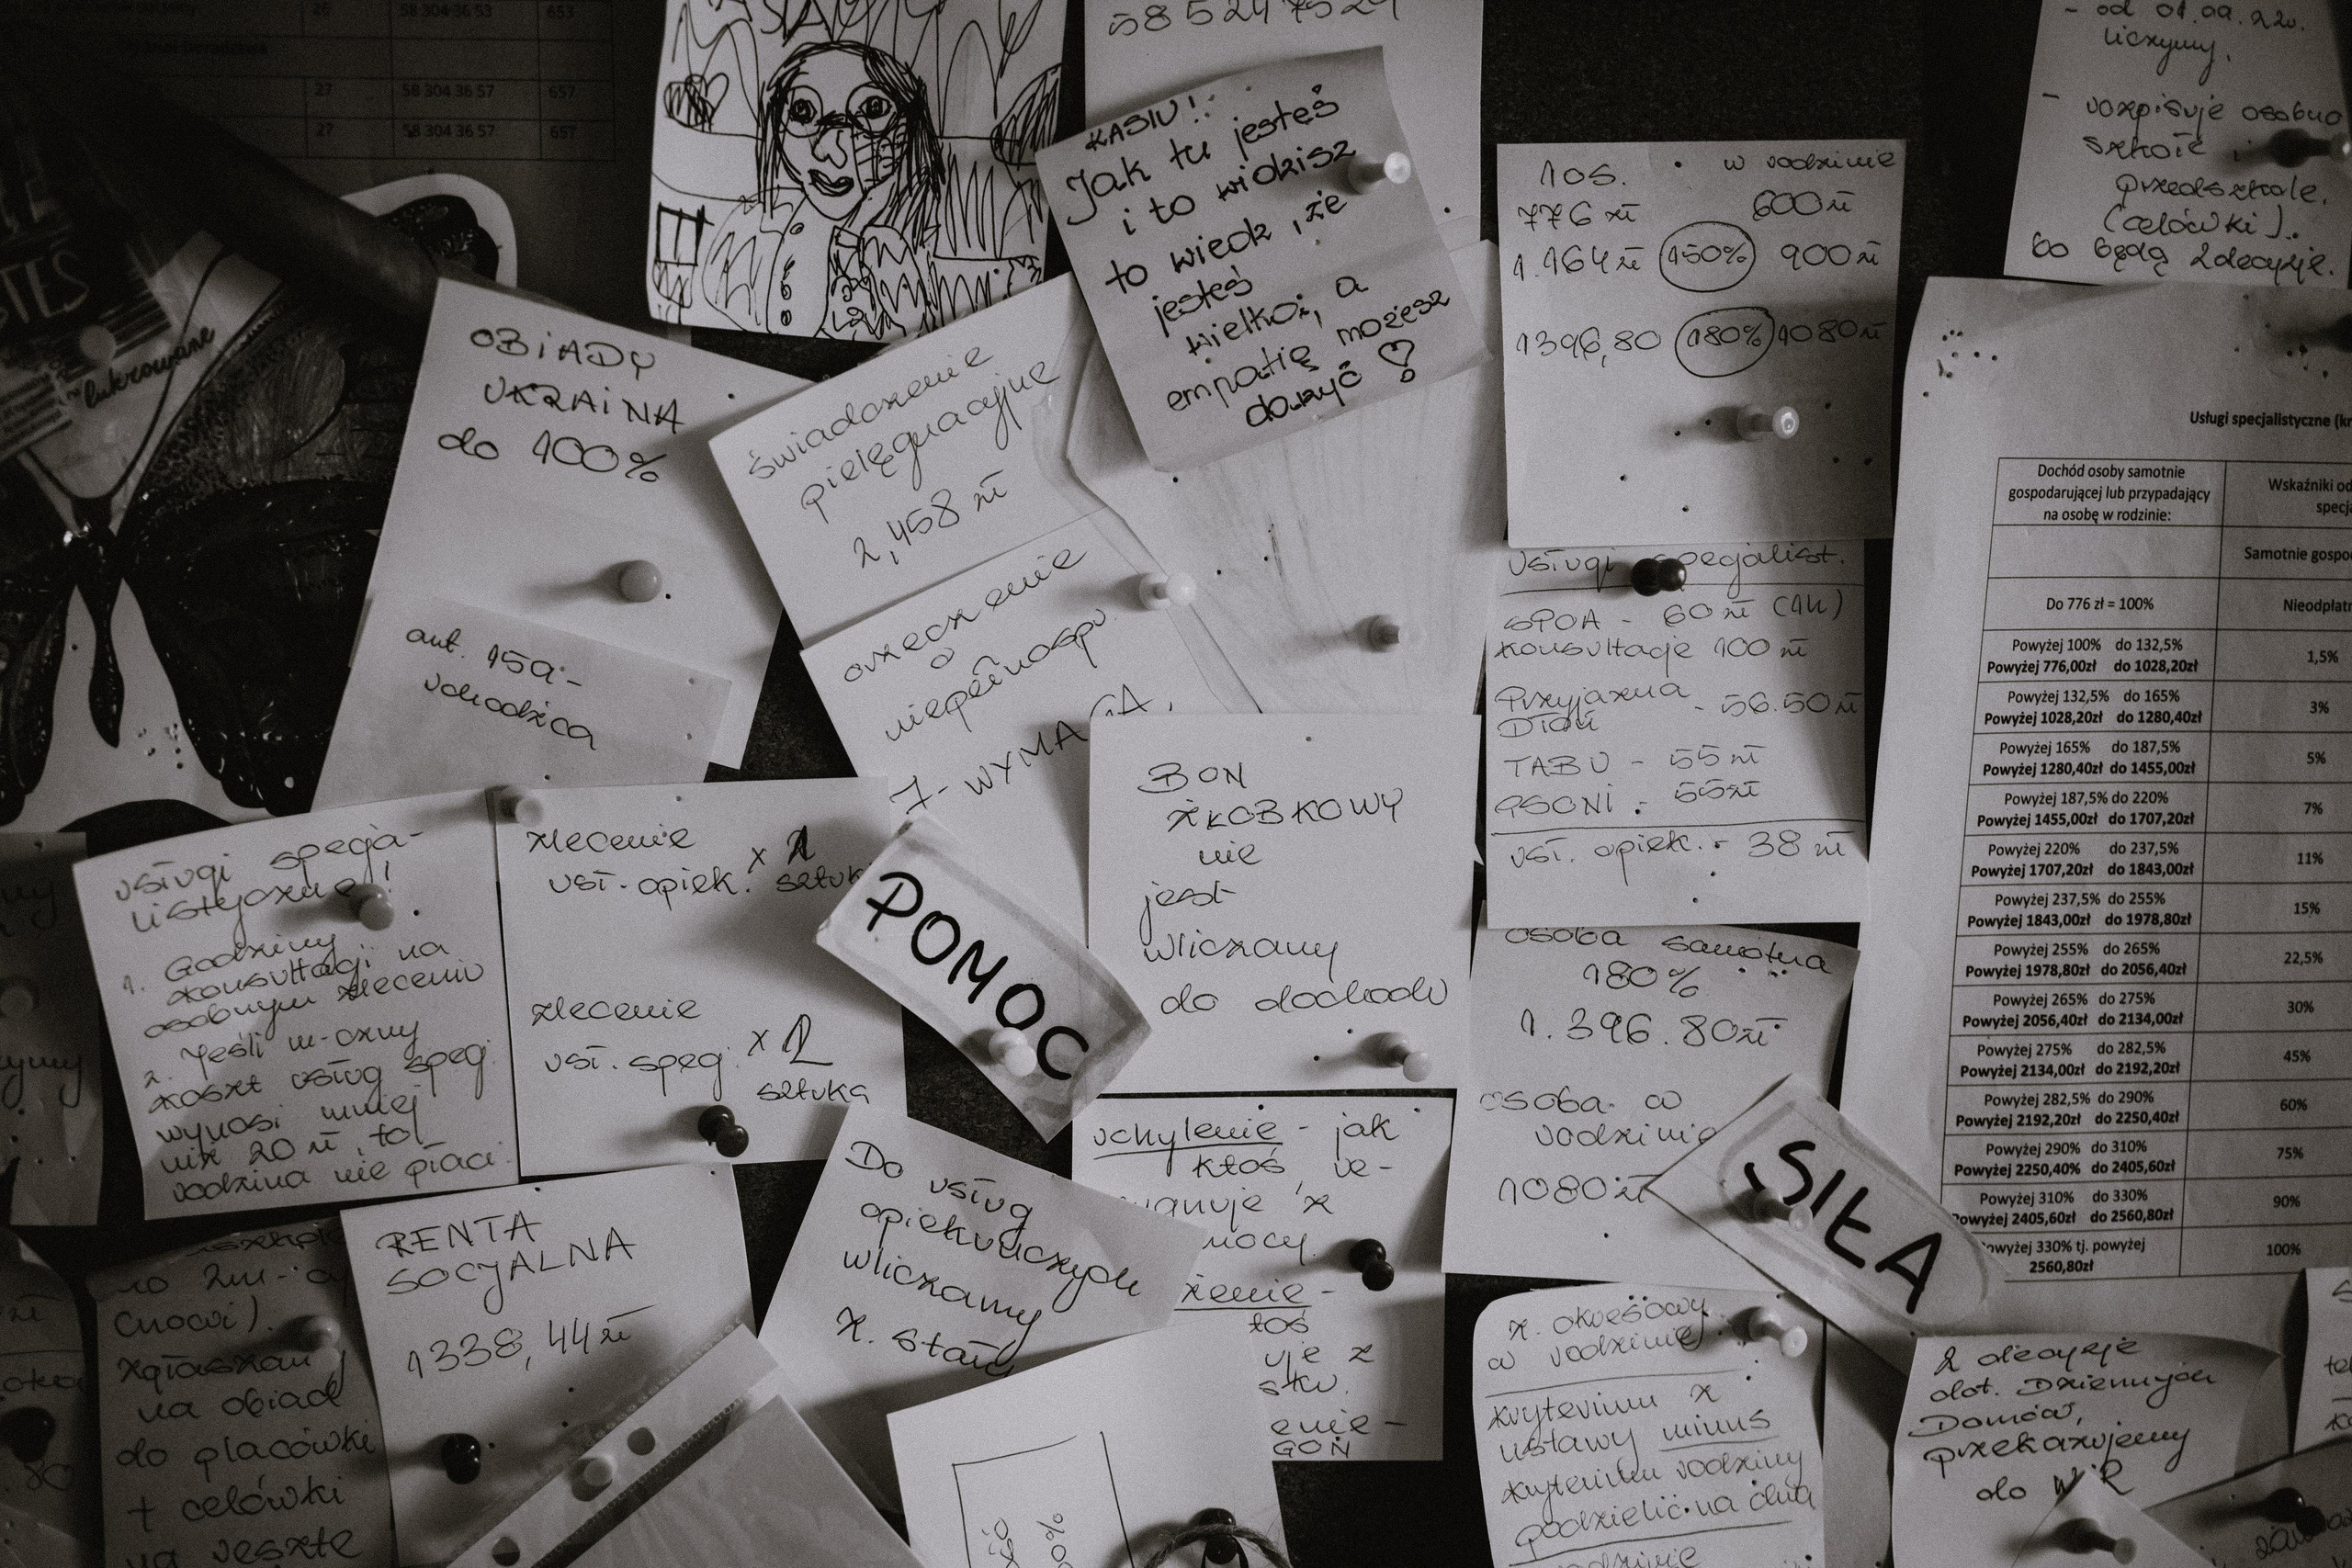 26 58 304 36 53 653
27 58 304 36 57 657
27 58 304 36 57 657
lukrowane
OBIADY
UKRAINA
do 100%
art. 15a -
uchodźca
świadczenie
pielęgnacyjne
2,458 zł
orzeczenie
o
niepełnospr.
7 - WYMAGA,
58 5247529
KASIU!
Jak tu jesteś
i to widzisz
to wiedz, że
jesteś
wielka, a
empatię możesz
1os. w rodzinie
776 zł 600 zł
1.164 zł 150% 900 zł
1396,80 180% 1080 zł
- od 01.09.22r.
liczymy.
- rozpisuje osobno
szkołę i
przedszkole.
(celówki).
bo będą 2 decyzje.
usługi specjalist.
SPOA - 60 zł (1h)
konsultacje 100 zł
Przyjazna
Dłoń - 56.50 zł
TABU - 55 zł
PSONI - 55 zł
usł. opiek. - 38 zł
Usługi specjalistyczne
Dochód osoby samotnie
gospodarującej lub przypadający
na osobę w rodzinie:
Wskaźniki
Samotnie
Do 776 zł = 100%
Powyżej 100% do 132,5%
Powyżej 776,00zł do 1028,20zł
1,5%
Powyżej 132,5% do 165%
Powyżej 1028,20zł do 1280,40zł
3%
Powyżej 165% do 187,5%
Powyżej 1280,40zł do 1455,00zł
5%
Powyżej 187,5% do 220%
Powyżej 1455,00zł do 1707,20zł
7%
Powyżej 220% do 237,5%
Powyżej 1707,20zł do 1843,00zł
11%
Powyżej 237,5% do 255%
Powyżej 1843,00zł do 1978,80zł
15%
Powyżej 255% do 265%
Powyżej 1978,80zł do 2056,40zł
22,5%
Powyżej 265% do 275%
Powyżej 2056,40zł do 2134,00zł
30%
Powyżej 275% do 282,5%
Powyżej 2134,00zł do 2192,20zł
45%
Powyżej 282,5% do 290%
Powyżej 2192,20zł do 2250,40zł
60%
Powyżej 290% do 310%
Powyżej 2250,40% do 2405,60zł
75%
Powyżej 310% do 330%
Powyżej 2405,60zł do 2560,80zł
90%
Powyżej 330% tj. powyżej
2560,80zł
100%
usługi specja-
listyczne!
1. Godziny
konsultacji na
osobnym zleceniu
2. Jeśli m-czny
koszt usług specj.
wynosi mniej
niż 20 zł, to
rodzina nie płaci.
zlecenie
usł. opiek. x 1
zlecenie
usł. specj. x 2
sztuka
POMOC
BON
ŻŁOBKOWY
nie
jest
wliczany
do dochodu
osoba samotna
180%
1.396.80 zł
osoba w
rodzinie
1080 zł
SIŁA
uchylenie - jak
ktoś re-
z
RENTA
SOCJALNA
1338,44 zł
Do usług
opiekuńczych
wliczamy
z. stały
zgłaszam
na obiad
do placówki
+ celówki
na resztę
z. okresowy
w rodzinie
kryterium z
ustawy minus
kryterium rodziny
podzielić na dwa
2 decyzje
dot. Dziennych
Domów,
przekazujemy
do WR